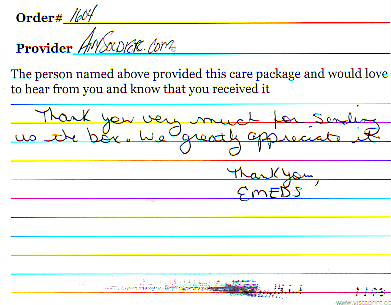 Order# 1604
Provider AnySoldier.com
The person named above provided this care package and would love
to hear from you and know that you received it
Thank you very much for sending
us the box. We greatly appreciate it
Thank you,
EMEDS
www.vistaprint.com